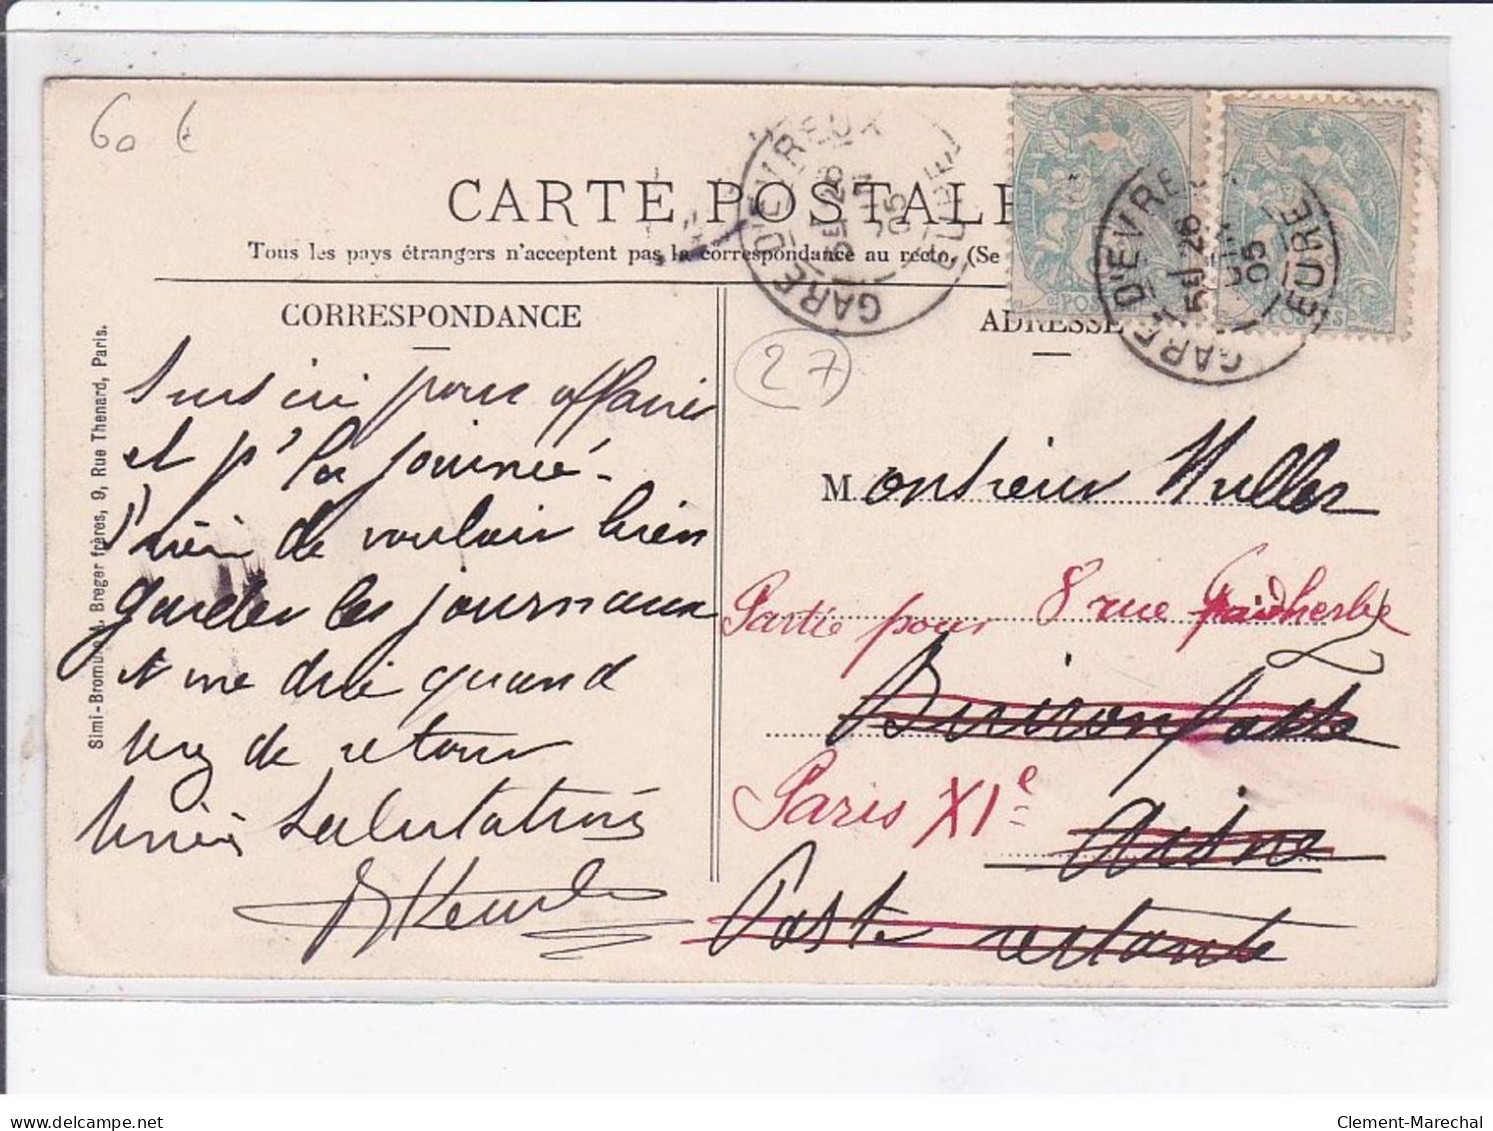 60 €
CARTE POSTALE
Tous les pays étrangers n'acceptent pas la correspondance au recto. (Se
CORRESPONDANCE
ADRESSE
GARE D'EVREUX
5E/ 26
JUIN
05
EURE
GARE D'EVREUX
5E/ 26
JUIN
05
EURE
POSTES
27
Simi-Bromure A. Breger frères, 9, Rue Thenard, Paris.
Suis ici pour affaires
et p' la journée -
de vouloir bien
garder les journaux
et me dire quand
de retour
Salutations
Monsieur Muller
Partie pour 8 rue Faidherbe
Paris XIe
Aisne
Poste restante
delcampe.net
Clement-Marechal